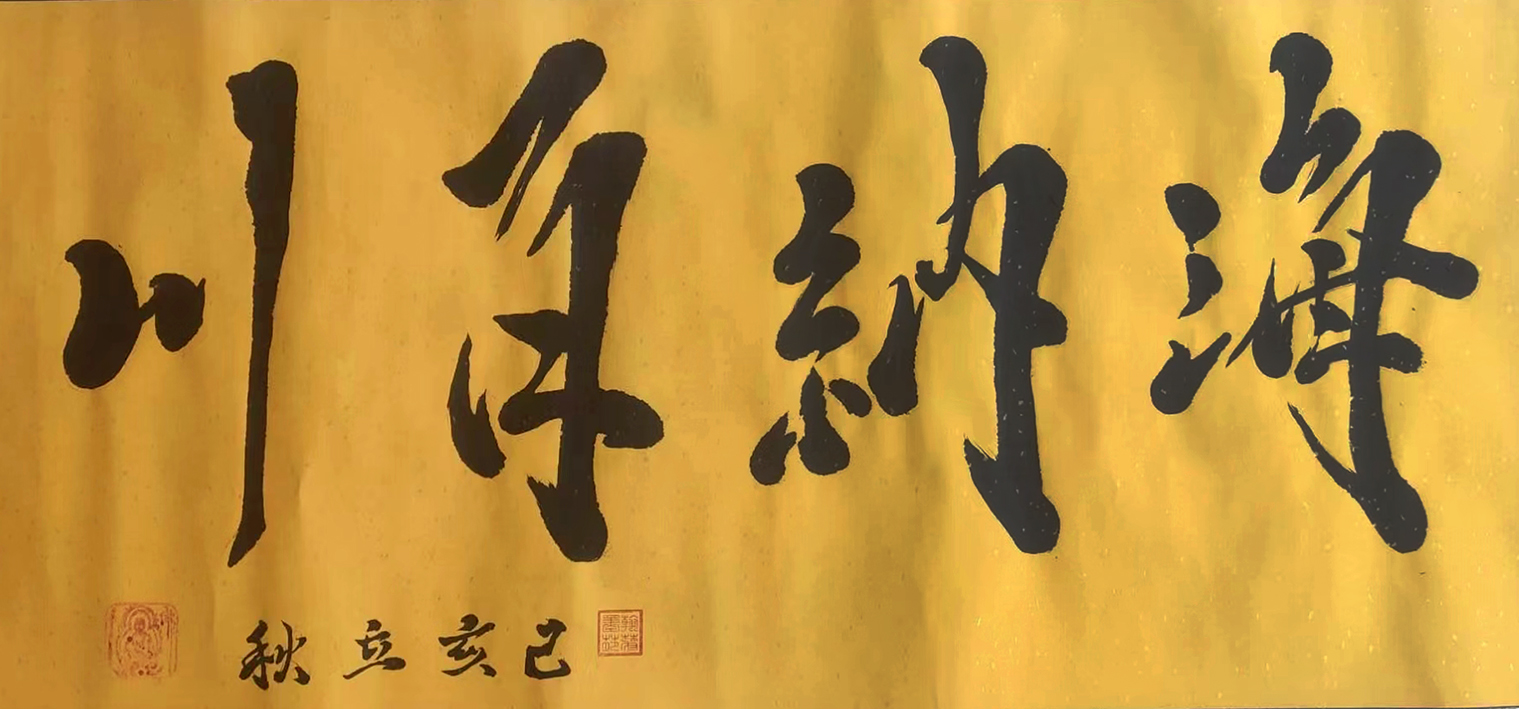 海納百川
己亥立秋